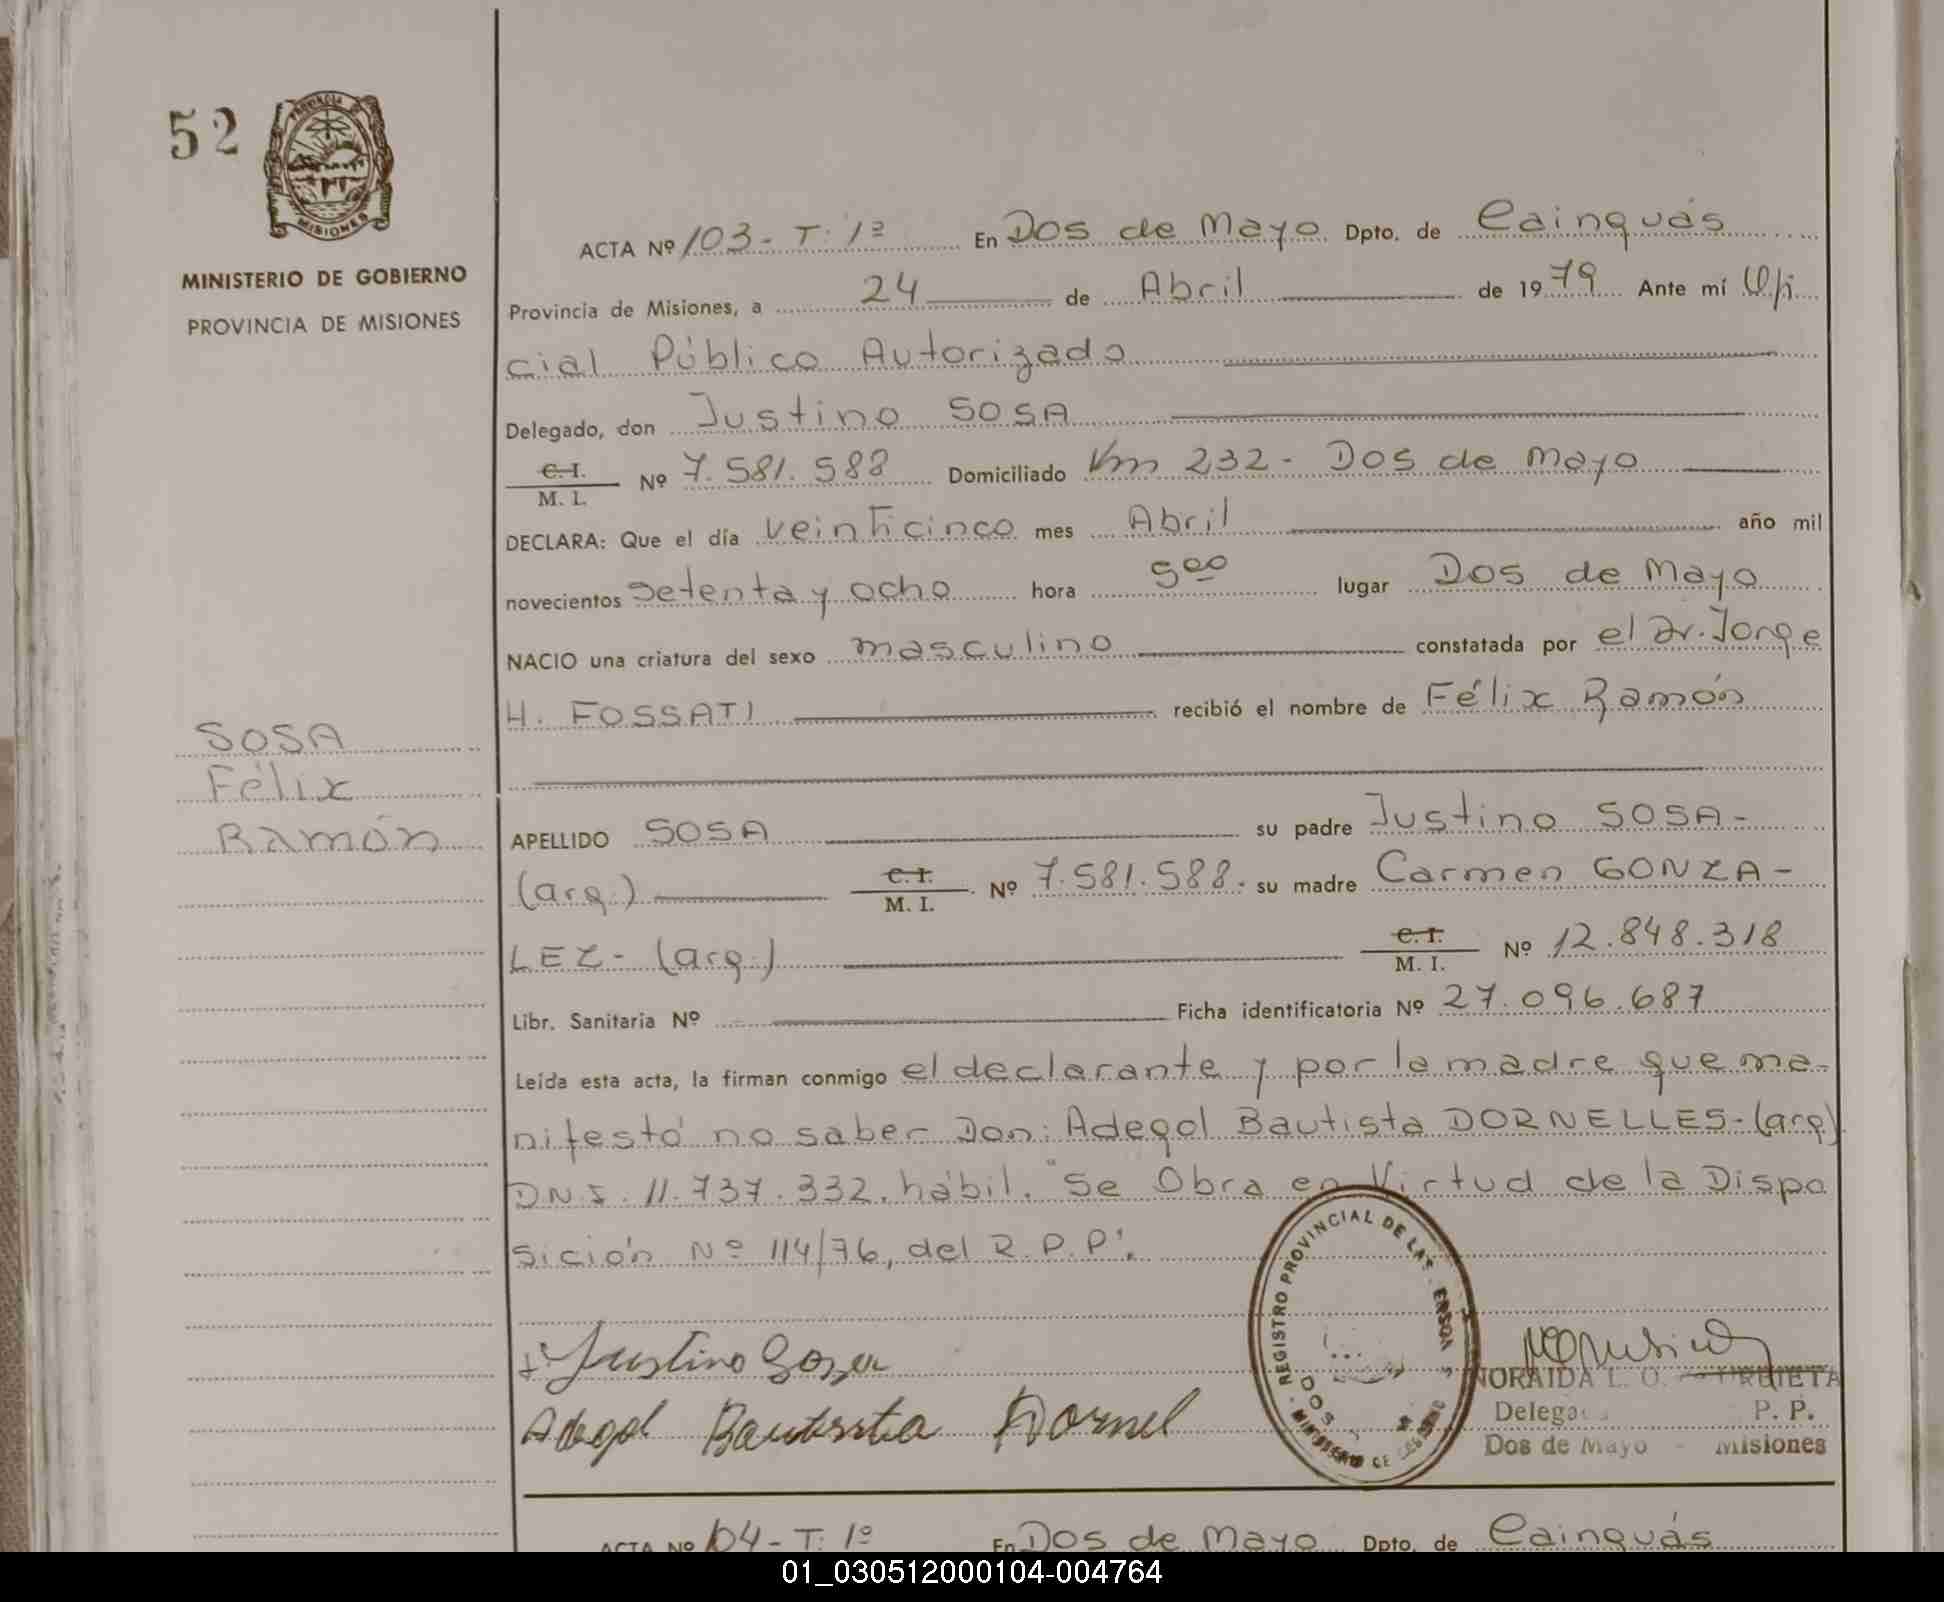 52
PROVINCIA DE
MISIONES
MINISTERIO DE GOBIERNO
PROVINCIA DE MISIONES
ACTA Nº 103 - T: 1º En Dos de Mayo Dpto. de Cainguás
Provincia de Misiones, a 24 de Abril de 1979 Ante mí Ofi
cial Público Autorizado
Delegado, don Justino SOSA
C.I. M. I. Nº 7.581.588 Domiciliado Km 232 - Dos de Mayo
DECLARA: Que el día veinticinco mes Abril año mil
novecientos setenta y ocho hora 9oo lugar Dos de Mayo
NACIO una criatura del sexo masculino constatada por el Dr. Jorge
H. FOSSATI recibió el nombre de Félix Ramón
SOSA
Félix
Ramón
APELLIDO SOSA su padre Justino SOSA -
(arg.) C.I. M. I. Nº 7.581.588. su madre Carmen GONZA -
LEZ - (arg.) C.I. M. I. Nº 12.848.318
Libr. Sanitaria Nº Ficha identificatoria Nº 27.096.687
Leída esta acta, la firman conmigo el declarante y por la madre que ma-
nifestó no saber Don: Adegol Bautista DORNELLES - (arg)
DN.I. 11.737.332. hábil. "Se Obra en Virtud de la Dispo
sición Nº 114/76, del R.P.P".
Justino Sosa
Adegol Bautista Dornel
REGISTRO PROVINCIAL DE LAS PERSONAS
DOS
MINISTERIO DE GOBIERNO
NORAIDA L. O. URBIETA
Delega P. P.
Dos de Mayo - Misiones
ACTA Nº 104 - T: 1º En Dos de Mayo Dpto. de Cainguás
01_030512000104-004764